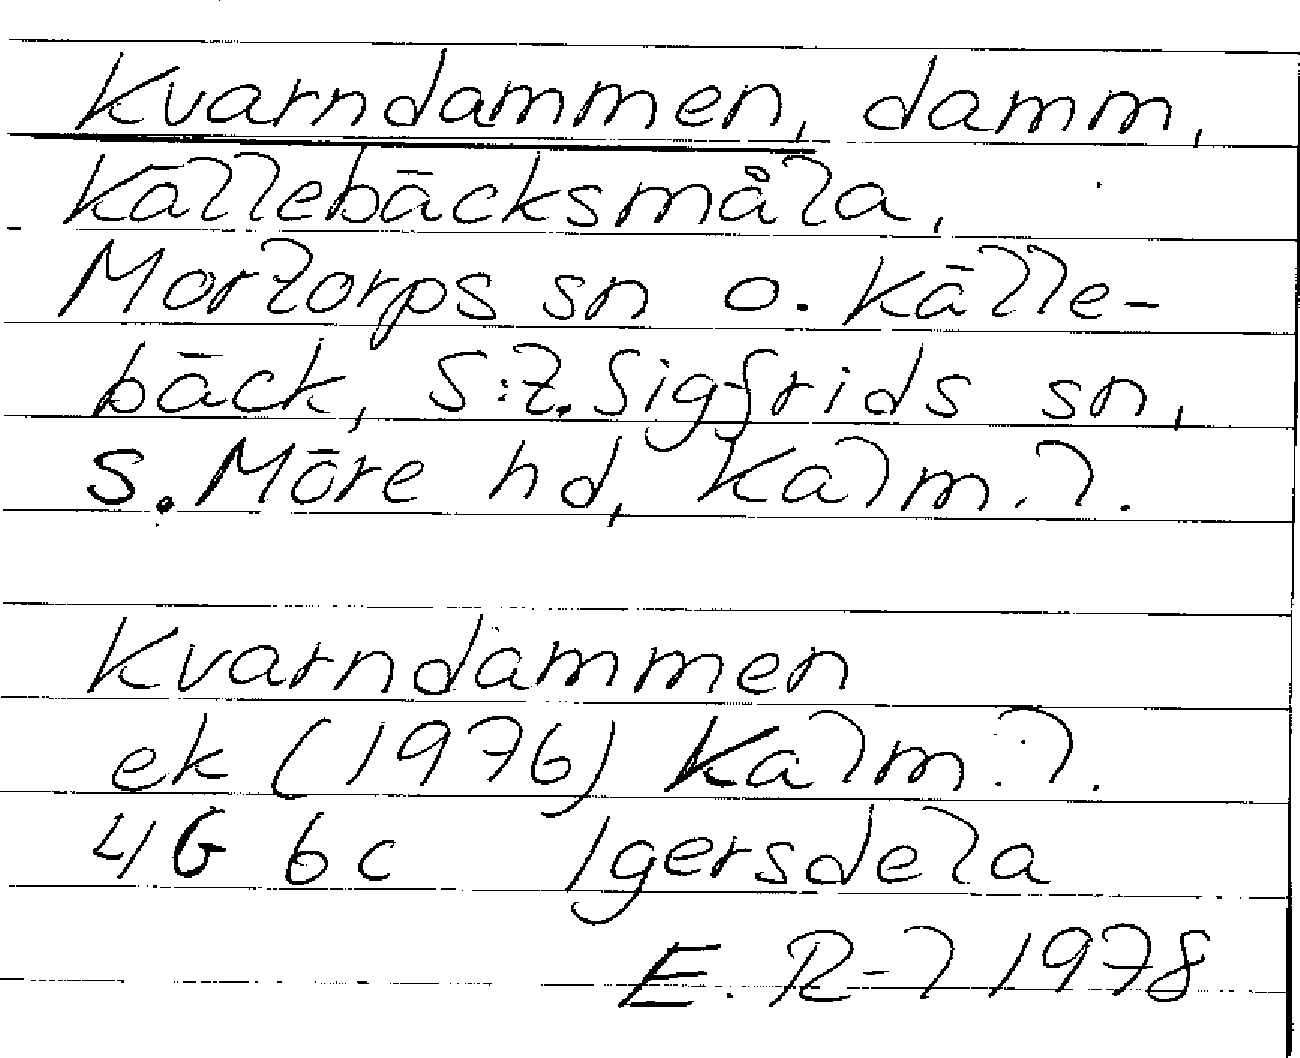 Kvarndammen, damm,
Källebäcksmåla,
Mortorps sn o. Källe-
bäck, S:t. Sigfrids sn,
S. Möre hd, Kalm. l.
Kvarndammen
ek (1976) Kalm. l.
4G 6c Igersdela
E. R-l 1978